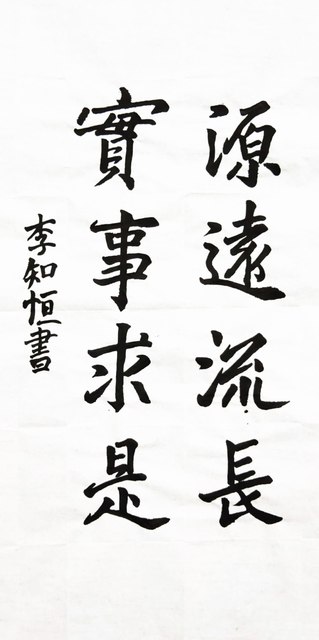 源遠流長
實事求是
李知恒書